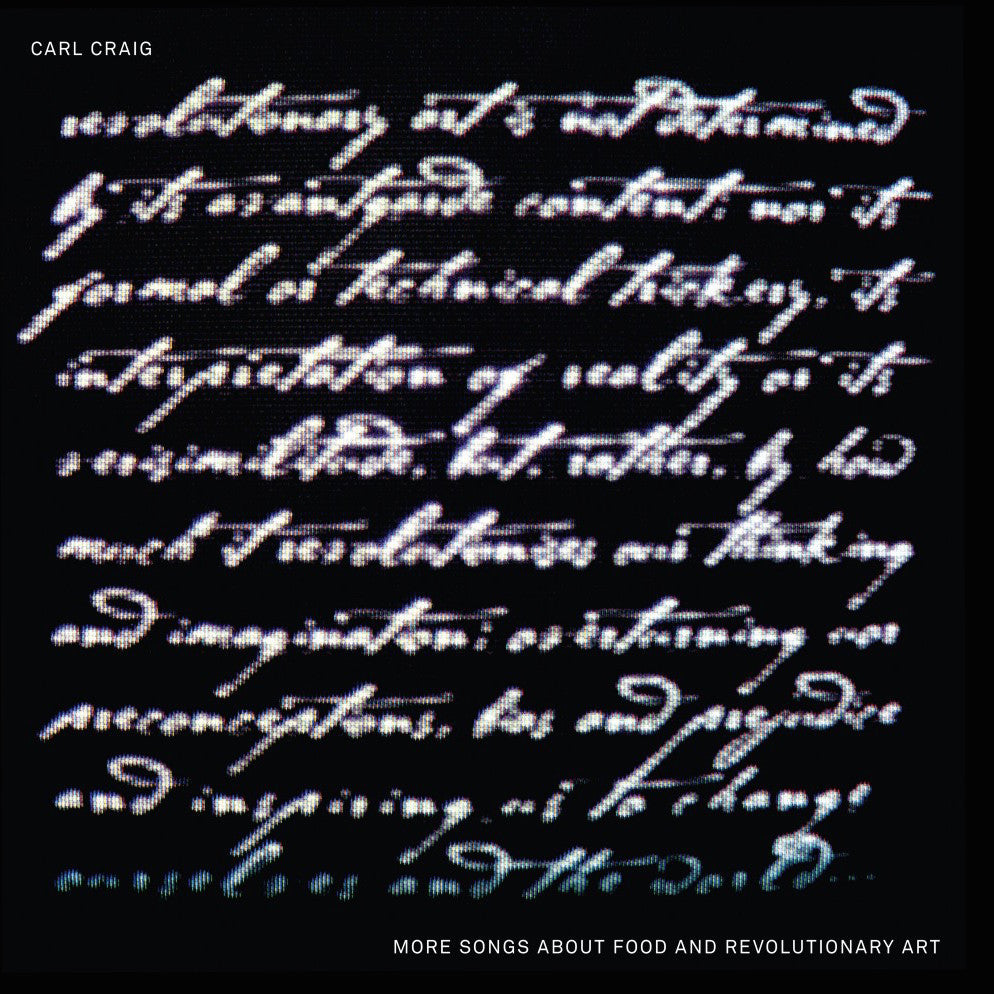 CARL CRAIG
revolutionary art is not determined
by its avantgarde content; nor its
formal or technical trickery, its
interpretation of reality or its
verisimilitude, but, rather, by how
much it revolutionises our thinking
and imagination; overturning our
preconceptions, bias and prejudice
and inspiring us to change
ourselves and the world...
MORE SONGS ABOUT FOOD AND REVOLUTIONARY ART